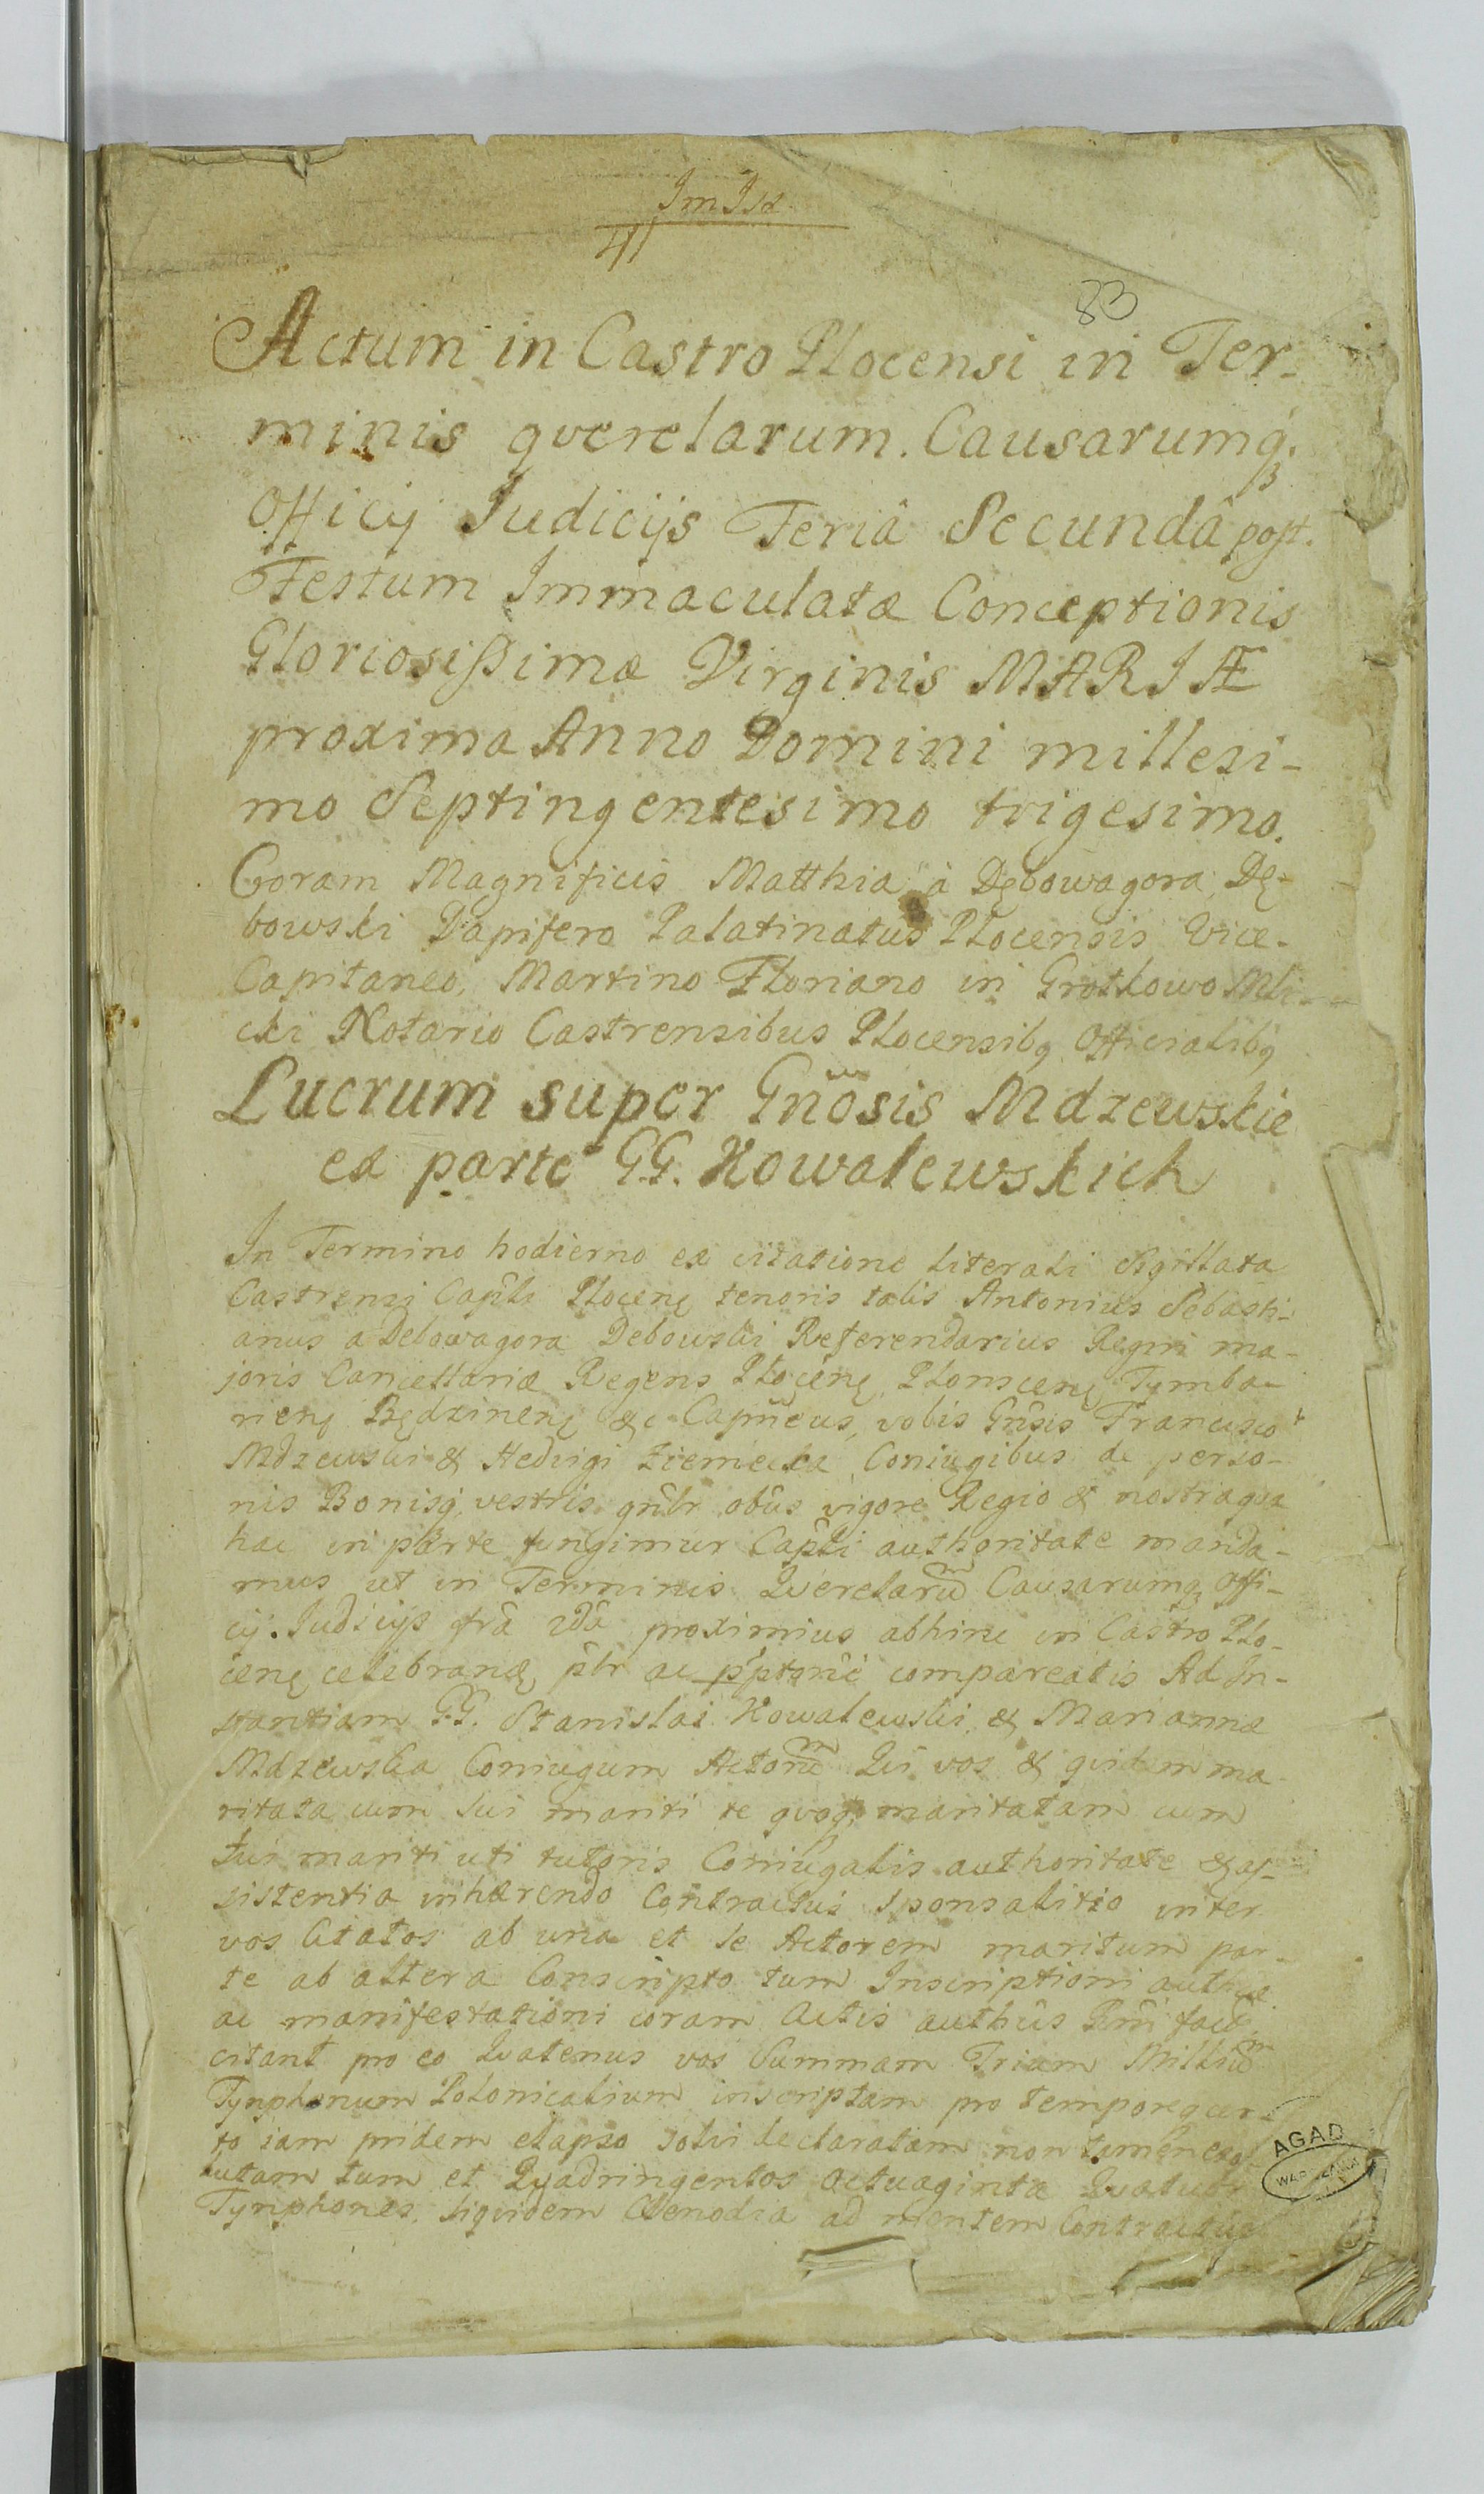 83
Actum in Castro Plocensi in Ter-
minis qverelarum. Causarumq́
Officij Judicijs Feriâ Secundâ post.
Festum Immaculatæ Conceptionis
Gloriosißimæ Virginis MARIÆ
proxima Anno Domini millesi-
mo Septingentesimo trigesimo.
Coram Magnificis Matthia à Dębowagora Dę-
bowski Dapifero Palatinatus Plocensis Vice-
Capitaneo, Martino Floriano in Grotkowo Mli-
cki Notario Castrensibus Plocensibꝫ Officialibꝫ
Lucrum super Gñosis Mdzewskie
ex parte GG. Kowalewskich
In Termino hodierno ex citatione literali Sigillata
Castrensi Capîli Plocenꝫ tenoris talis Antonius Sebasti-
anus a Debowagora Debowski Referendarius Regni ma-
joris Cancellariæ Regens Plocenꝫ, Plonscenꝫ Tymba-
rienꝫ Będzinenꝫ &c Capn̂eus, vobis Gñsis Francisco
Mdzewski & Hedvigi Ziemecka Coniugibus de perso-
nis Bonisq́ vestris gñlr obûs vigore Regio & nostra qva
hac in parte fungimur Capîli authoritate manda-
mus ut in Terminis Qverelarum Causarumqꝫ Offi-
cij. Judicijs frâ 2dâ proximius abhinc in Castro Plo-
cenꝫ celebranꝫ p̂lr ac pp̂toriê compareatis Ad In-
stantiam GG. Stanislai Kowalewski & Mariannæ
Mdzewska Coniugum Actorum Qvi vos & qvidem ma
ritata cum sui mariti te qvoqꝫ maritatam cum
tui mariti uti tutoris Coniugalis authoritate & as-
sistentia inhærendo Contractui sponsalitio inter
vos Citatos ab una et se Actorem maritum par-
te ab altera Conscripto tum Inscriptioni
ac manifestationi coram Actis authûs
citant pro eo Qvatenus vos Summam Trium Millium
Tynphonum Polonicalium inscriptam pro tempore cer-
to iam pridem elapso solvi declaratam non tamen exo-
lutam tum et Qvadringentos octuaginta Qvatuor
Tynphones. siqvidem Clenodia ad mentem Contractus
AGAD
WARSZAWA